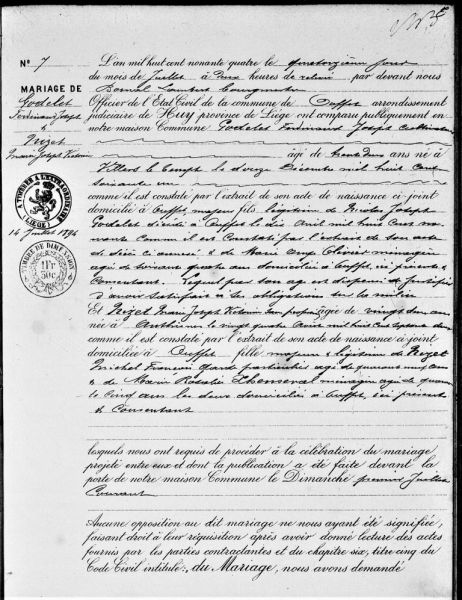 N° 7
MARIAGE DE
Godelet
Ferdinand Joseph
&
Nizet
Marie Joseph Victorine
A TIMBRER A L'EXTRAORDINAIRE
(LIEGE)
14 Juillet 1894
TIMBRE DE DIMENSION
1 Fr
50c
L'an mil huit cent nonante quatre le quatorzième jour
du mois de Juillet à deux heures de relevée par devant nous
Lambert
Officier de l'Etat Civil de la commune de Ouffet arondissement
judiciaire de Huy province de Liège ont comparu publiquement en
notre maison Commune Godelet Ferdinand Joseph cultivateur
âgé de trente deux ans né à
Villers le Temple le Décembre mil huit cent
soixante un
comme il est constaté par l'extrait de son acte de naissance ci joint
domicilié à Ouffet majeur fils légitime de Nicolas Joseph
Godelet décédé à Ouffet le dix Avril mil huit cent
nonante comme il est constaté par l'extrait de son acte
de décès ci annexé & de Marie ménagère
agée de soixante quatre ans domiciliée à Ouffet, ici présente &
Consentant. Lequel par son age est dispensé de justifier
d'avoir satisfait à ses obligations sur la milice
Et Nizet Marie Joseph Victorine San profession agée de vingt deux ans
née à Anthisnes le vingt quatre Août mil huit cent septante deux
comme il est constaté par l'extrait de son acte de naissance à joint
domiciliée à Ouffet fille majeure & légitime de Nizet
Michel François Garde particulier agé de quarante neuf ans
& de Marie Rosalie ménagère agée de quarante
cinq ans les deux domiciliés à Ouffet, ici présents
& Consentant
lesquels nous ont requis de procéder à la célébration du mariage
projeté entre eux et dont la publication a été faite devant la
porte de notre maison Commune le Dimanche premier Juillet
Courant
Aucune opposition au dit mariage ne nous ayant été signifiée,
faisant droit à leur réquisition après avoir donné lecture des actes
fournis par les parties contractantes et du chapitre six, titre cinq du
Code Civil intitulé: du Mariage, nous avons demandé